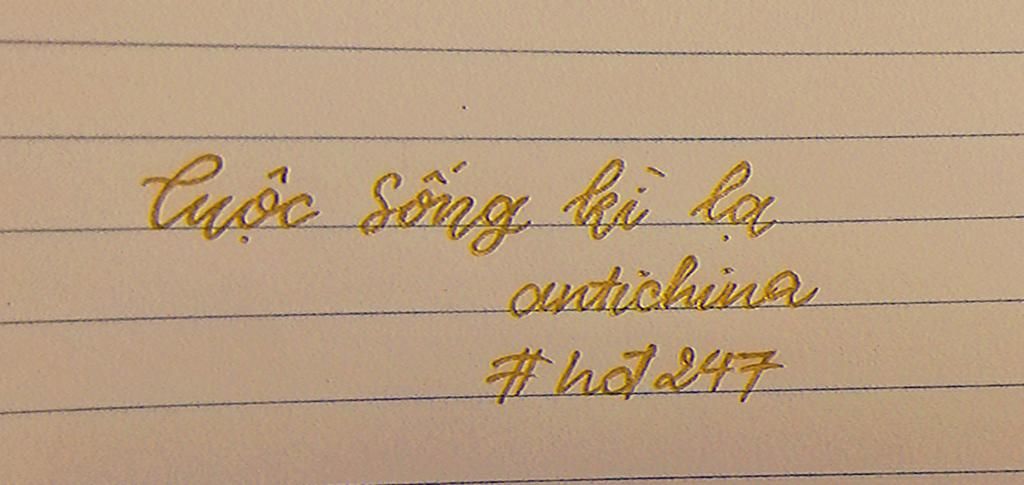 Cuộc sống kì lạ
antichina
#hot247